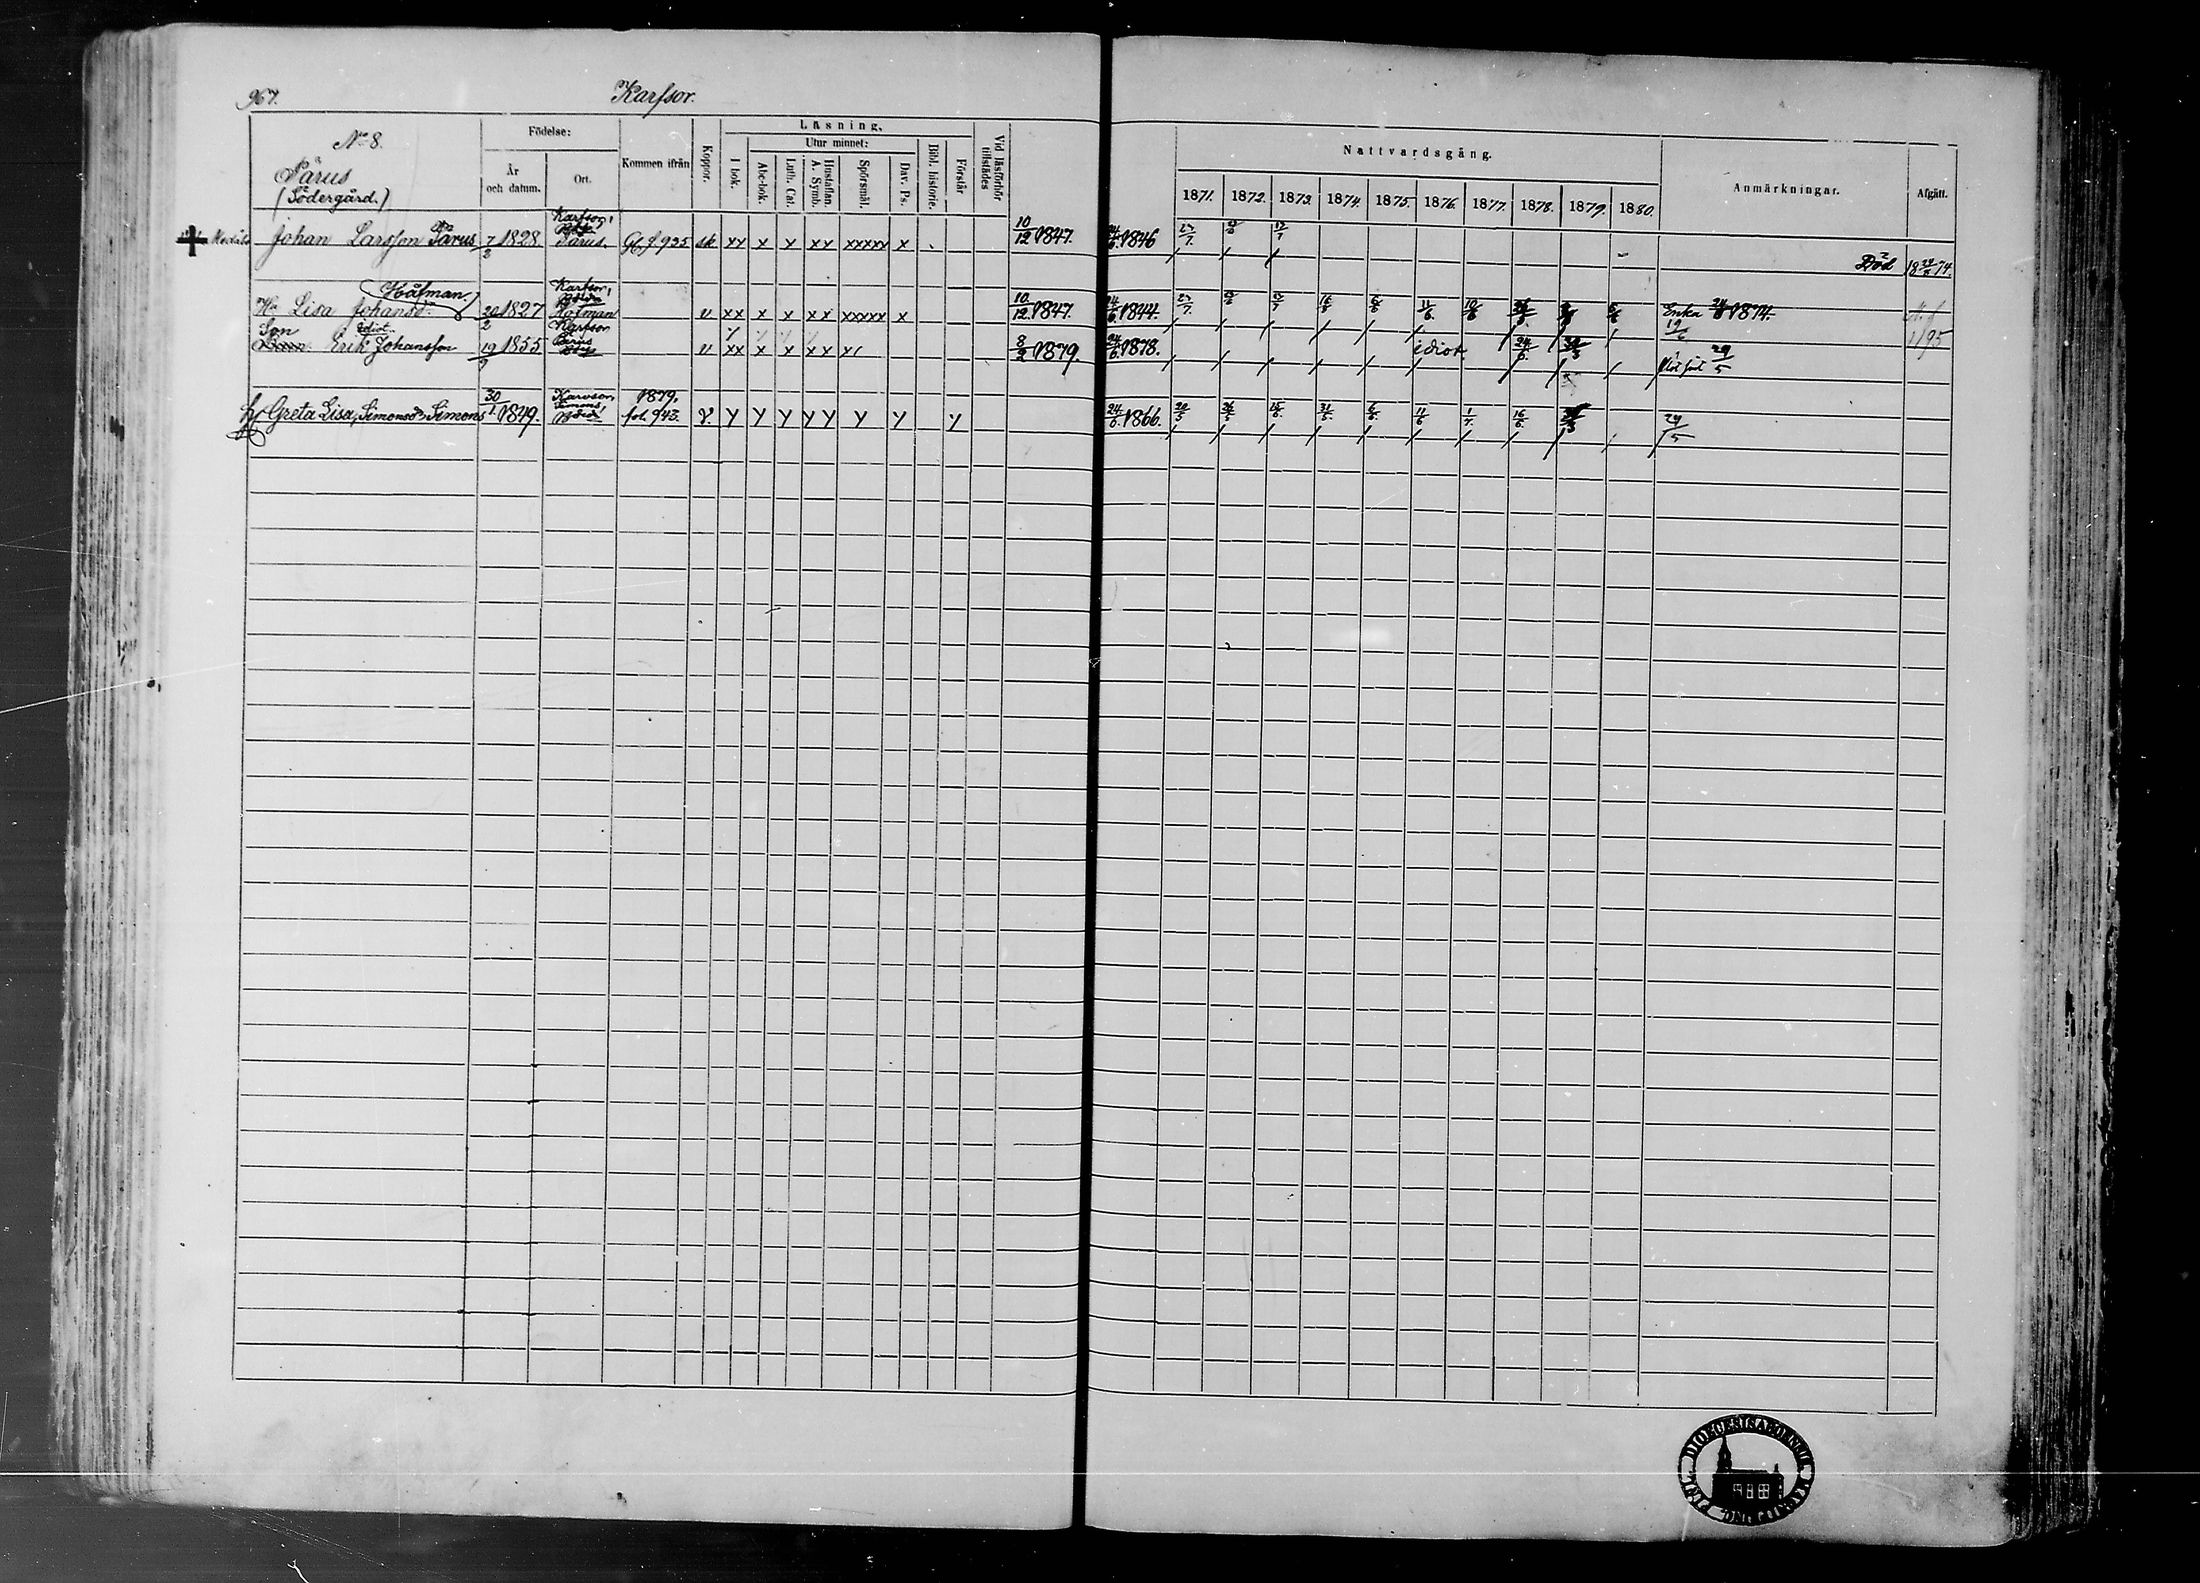 967.
Karfsor.
No 8.
Pärus
(Södergård.)
Födelse:
År och datum.
Ort.
Kommen ifrån
Koppor.
Läsning.
I bok.
Utur minnet:
Abc-bok.
Luth. Cat.
Hustaflan. A. Symb.
Spörsmål.
Dav. Ps.
Bibl. historie.
Förstår
Vid läsförhör tillstädes
Nattvardsgång.
1871. 1872. 1873. 1874. 1875. 1876. 1877. 1878. 1879. 1880.
Anmärkningar.
Afgått.
Johan Larsson Pärus 7/2 1828. Karfsor, Pärus. Gb. f. 925 sk xx x x xx xxxxx x 10/12 1847. 24/6 1846
Död 18 74.
Håfman.
Hu Lisa Johansdr 20/2 1827 Karfsor, Hofman v xx x x xx xxxxx x 10/12 1847. 24/6 1844. 16/8 11/6 10/6 Enka 1874.
Son Idiot.
Barn. Erik Johansson 19/9 1855 Karfsor v xx x x xx x 8/2 1879. 24/6 1878. idiot 24/6 29/5
1/95
Greta Lisa, Simonsdr Simons 30/1 1849. Karvsor, Simons 1879. fol. 943. v. y y y y y y y 24/6 1866. 20/5 15/6 31/5 6/6 11/6 1/7 16/6 29/5